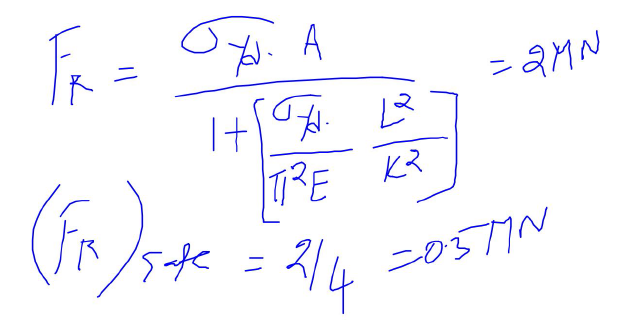 F_R = σ_yd. A / 1 + [σ_yd. / π²E L² / K²] = 2MN
(F_R)_safe = 2/4 = 0.5MN